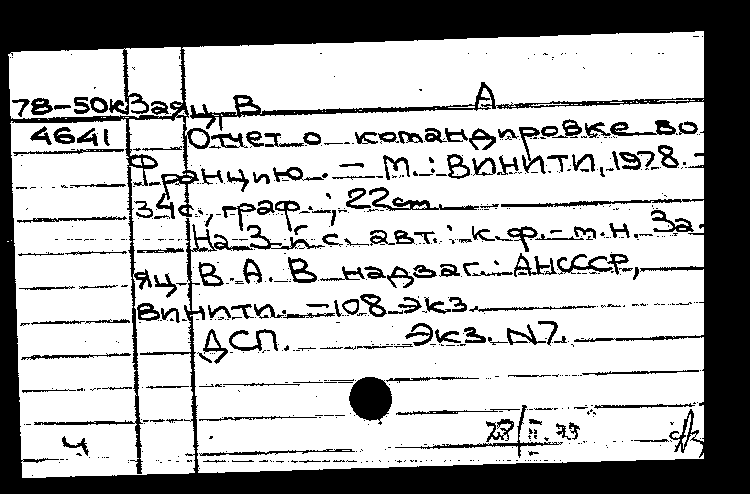 78-50к Заяц, В А
4641 Отчет о командировке во
Францию. — М.: ВИНИТИ, 1978. -
34с., граф.; 22cm.
На 3 с. авт.: к.ф.-м.н. За-
яц В.А. В надзаг.: АНСССР,
ВИНИТИ. -108 экз.
ДСП. Экз. N7.
Ч 28/II.79